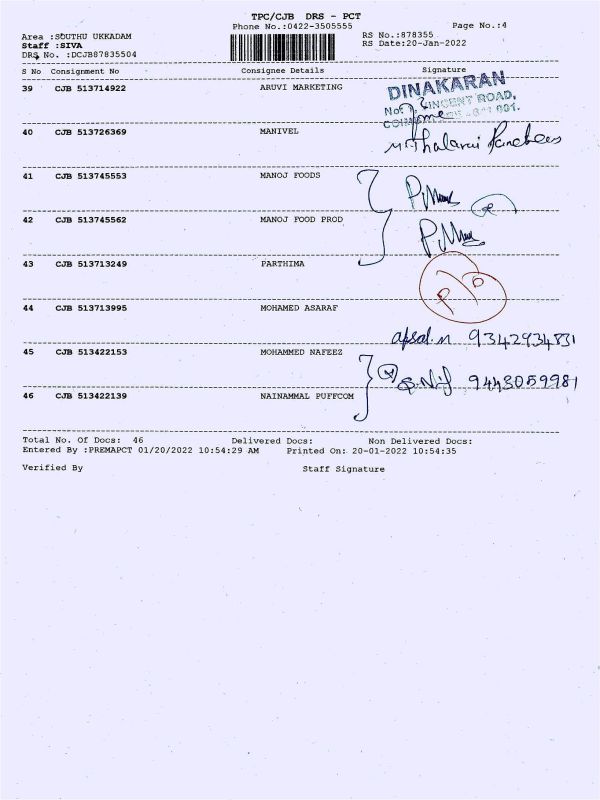 TPC/CJB DRS - PCT
Phone No.:0422-3505555
Page No.:4
Area :SOUTHU UKKADAM
RS No.:878355
Staff :SIVA
RS Date:20-Jan-2022
DRS No. :DCJB87835504
S No Consignment No Consignee Details Signature
39 CJB 513714922 ARUVI MARKETING
DINAKARAN
No. VINCENT ROAD,
40 CJB 513726369 MANIVEL
41 CJB 513745553 MANOJ FOODS
42 CJB 513745562 MANOJ FOOD PROD
43 CJB 513713249 PARTHIMA
44 CJB 513713995 MOHAMED ASARAF
afsal.m 9342934831
45 CJB 513422153 MOHAMMED NAFEEZ
9443059981
46 CJB 513422139 NAINAMMAL PUFFCOM
Total No. Of Docs: 46 Delivered Docs: Non Delivered Docs:
Entered By :PREMAPCT 01/20/2022 10:54:29 AM Printed On: 20-01-2022 10:54:35
Verified By Staff Signature